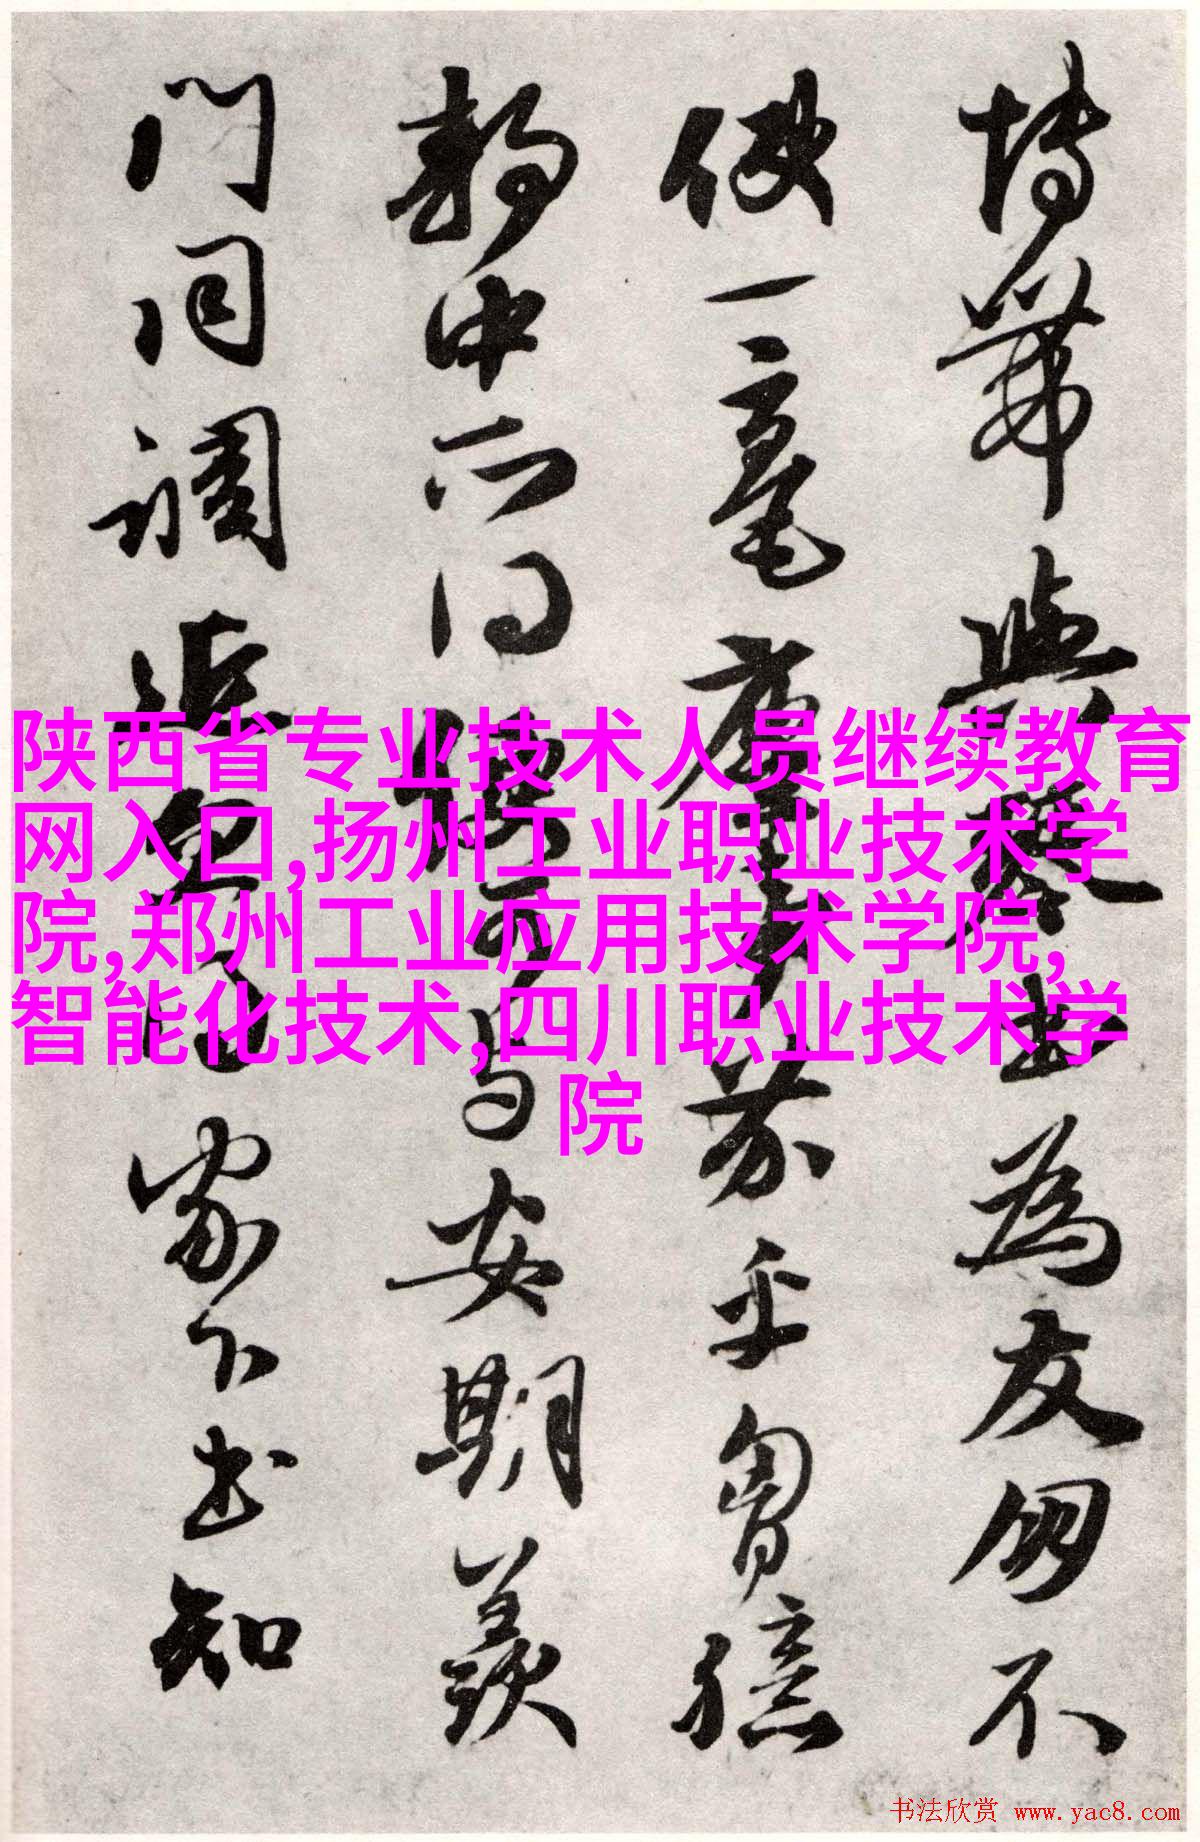 陕西省专业技术人员继续教育
网入口,扬州工业职业技术学
院,郑州工业应用技术学院,
智能化技术,四川职业技术学
院
與琴書為友 不
使一毫 芥乎胷臆
静中所得 可与安期羨
門同調 家下書知
书法欣赏 www.yac8.com